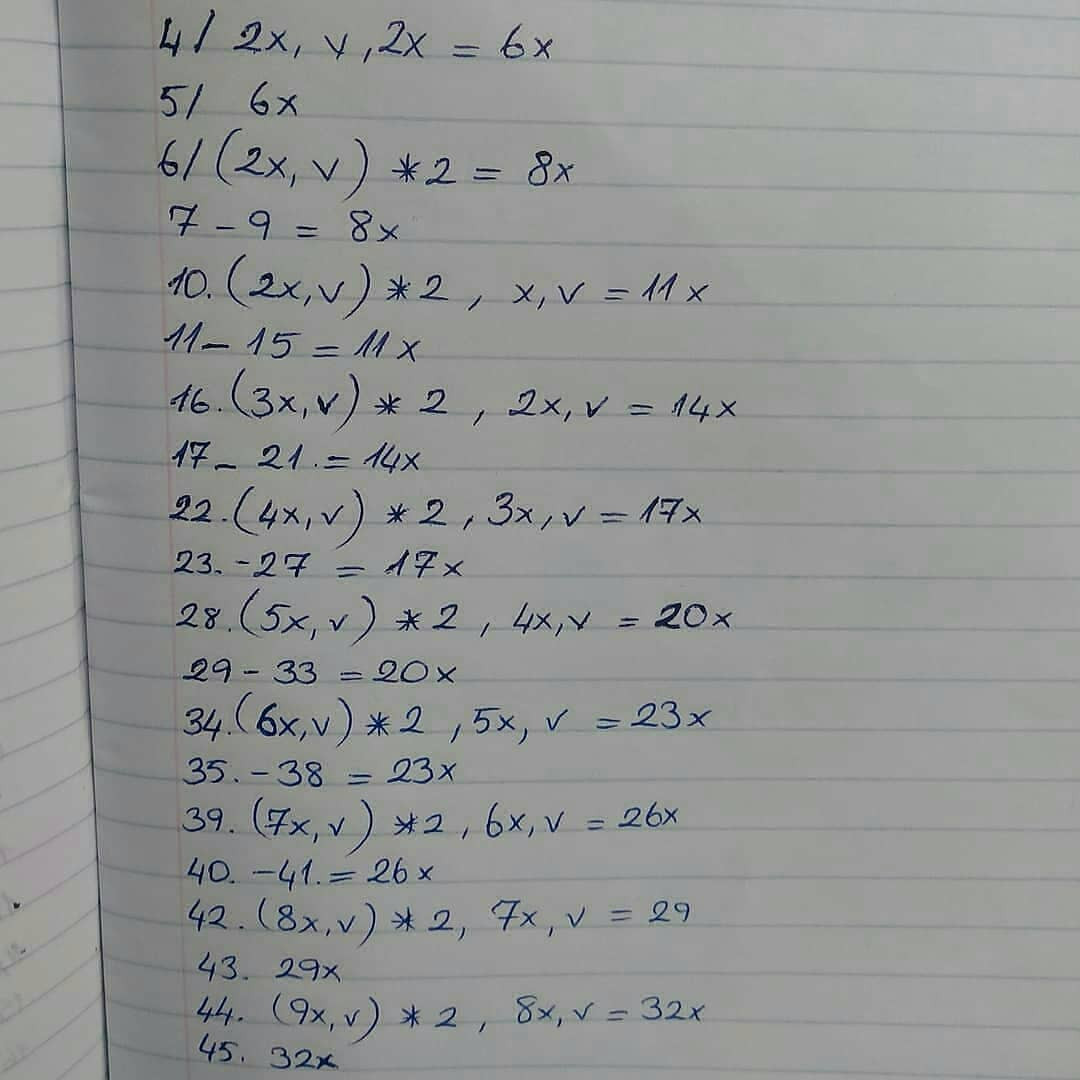 4/ 2x, v, 2x = 6x
5/ 6x
6/ (2x, v) *2 = 8x
7 - 9 = 8x
10. (2x, v) *2, x, v = 11x
11 - 15 = 11x
16. (3x, v) * 2, 2x, v = 14x
17 - 21. = 14x
22. (4x, v) * 2, 3x, v = 17x
23. - 27 = 17x
28. (5x, v) * 2, 4x, v = 20x
29 - 33 = 20x
34. (6x, v) * 2, 5x, v = 23x
35. - 38 = 23x
39. (7x, v) *2, 6x, v = 26x
40. - 41. = 26x
42. (8x, v) * 2, 7x, v = 29
43. 29x
44. (9x, v) * 2, 8x, v = 32x
45. 32x